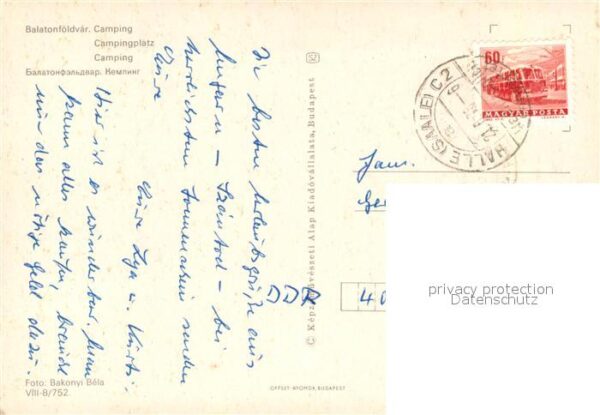 Balatonföldvár. Camping
Campingplatz
Camping
Балатонфэльдвар. Кемпинг
Die besten Urlaubsgrüße aus
Ungarn – Szántod – bei
herrlichstem Sonnenschein senden
Eure
Eure Lya u. Kurti.
Hier ist es wunderbar. Man
kann alles kaufen, braucht
nur das nötige Geld dazu.
Foto: Bakonyi Béla
VIII-8/752
© Képzőművészeti Alap Kiadóvállalata, Budapest
OFFSET-NYOMDA, BUDAPEST
60
MAGYAR POSTA
HALLE (SAALE) C 2
Fam.
DDR
40
privacy protection
Datenschutz